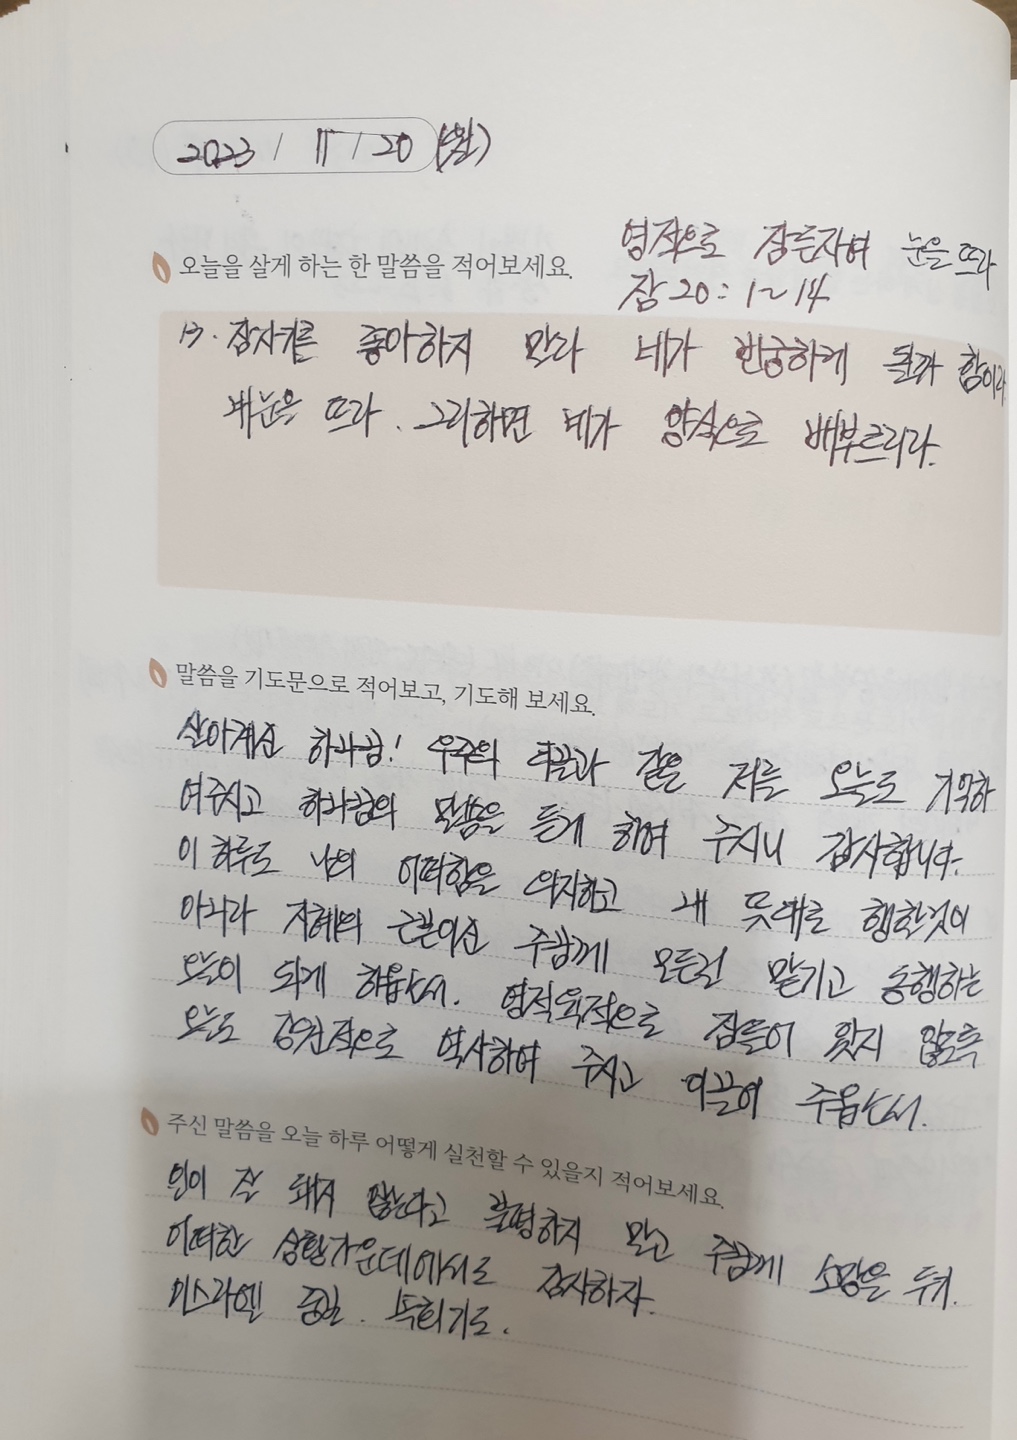 2023 / 11 / 20 (월)
영적으로 잠든자여 눈을 뜨라
오늘을 살게 하는 한 말씀을 적어보세요.
잠 20 : 1~14
13. 잠자기를 좋아하지 말라 네가 빈궁하게 될까 함이라
네눈을 뜨라. 그리하면 네가 양식으로 배부르리라.
말씀을 기도문으로 적어보고, 기도해 보세요.
살아계신 하나님! 우주의 티끌과 같은 저를 오늘도 기억하
여주시고 하나님의 말씀을 듣게 하여 주시니 감사합니다.
이 하루도 나의 어떠함을 의지하고 내 뜻대로 행한것이
아니라 지혜의 근본이신 주님께 모든걸 맡기고 동행하는
오늘이 되게 하옵소서. 영적육적으로 잠들어 있지 않도록
오늘도 강권적으로 역사하여 주시고 이끌어 주옵소서.
주신 말씀을 오늘 하루 어떻게 실천할 수 있을지 적어보세요.
일이 잘 돼지 않는다고 불평하지 말고 주님께 소망을 두기.
어떠한 상황가운데에서도 감사하자.
이스라엘 특히기도.